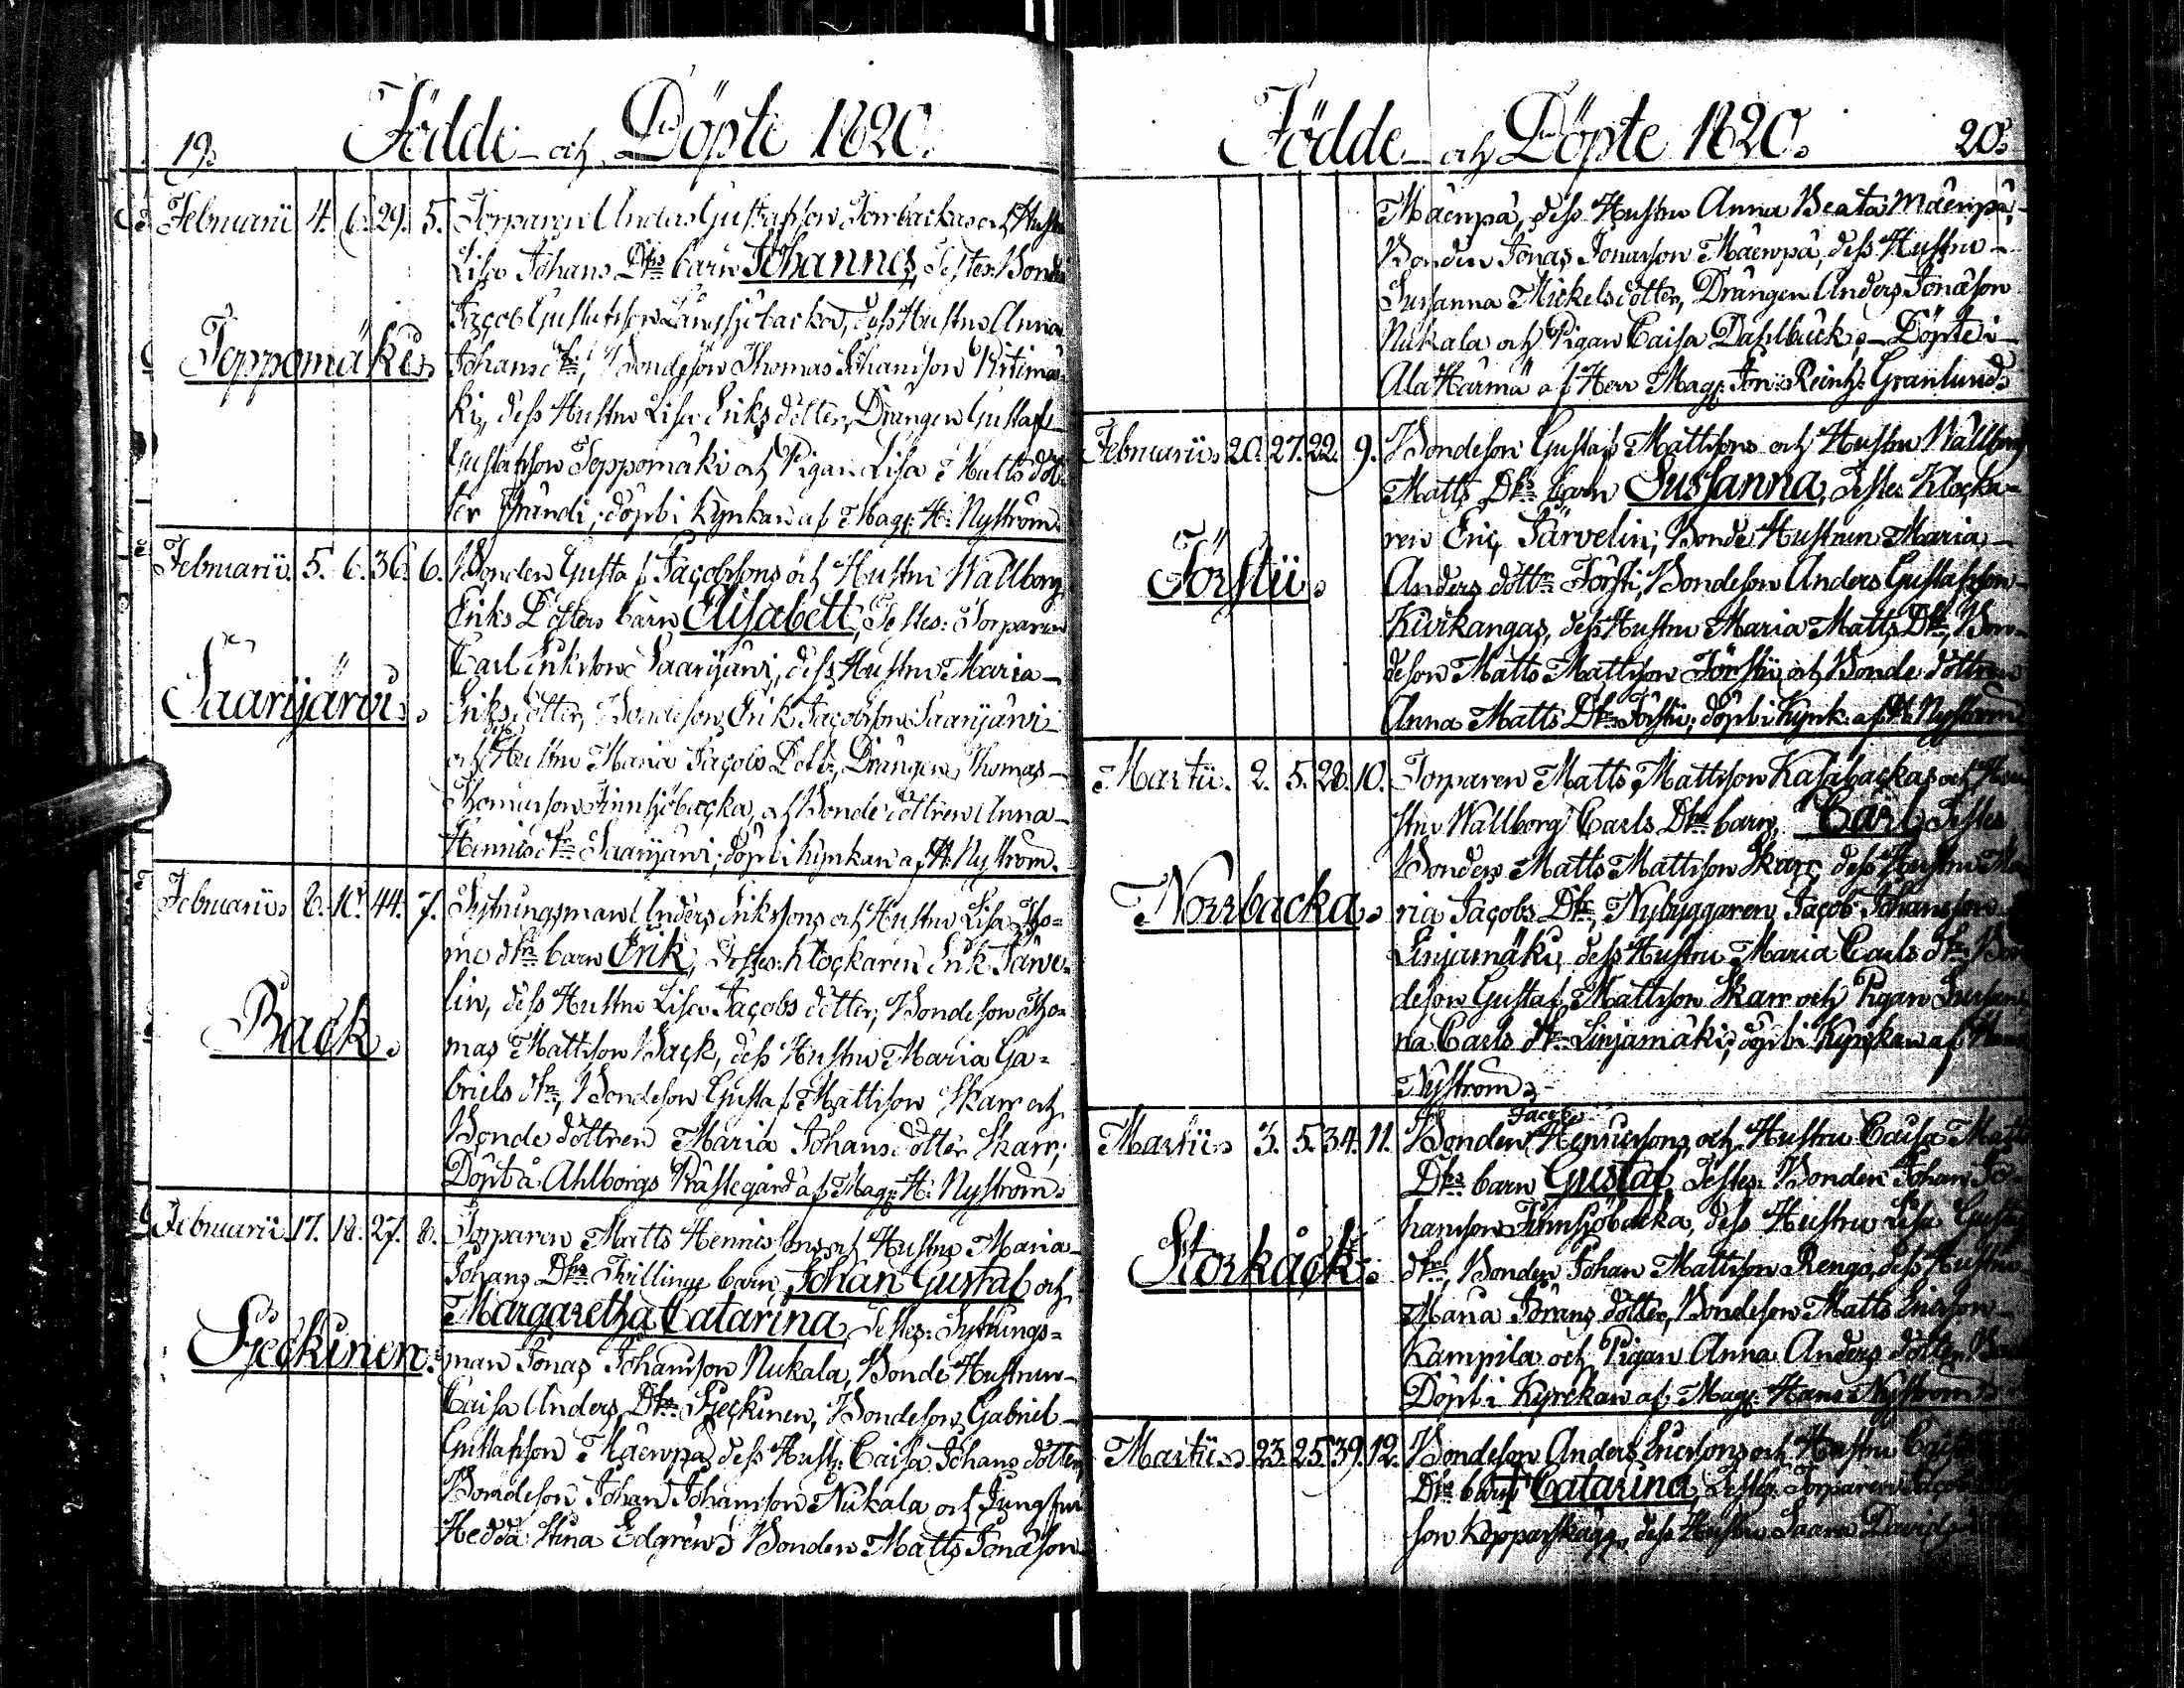 19.
Födde och Döpte 1820.
Februarii 4. 6. 29. 5. Torparen Anders Gustafsson Torrbackas och Hustru
Lisa Johans Dtrs barn Johannes, Testes: Bonden
Jacob Gustafsson Långsjöbacka, dess Hustru Anna
Teppomäki
Johans dtr, Bondeson Thomas Johansson Ritimä-
ki, dess Hustru Lisa Eriks dotter, Drängen Gustaf
Gustafsson Teppomäki och Pigan Lisa Matts dot-
ter Brandi; döpt i Kyrkan af Mag: H: Nyström.
Februarii. 5. 6. 36. 6. Bonden Gustaf Jacobssons och Hustru Wallborg
Eriks Dotters barn Elisabett, Testes: Torparen
Carl Eriksson Saarijärvi, dess Hustru Maria
Saarijärvi.
Eriks dotter, Bondeson Erik Jacobsson Saarijärvi
och Hustru Maria Jacobs Dotter, Drängen Thomas
Thomasson Finnsjöbacka, och Bonde dottren Anna
Hennis dtr Saarijärvi; döpt i Kyrkan af H: Nyström.
Februarii 8. 10. 44. 7. Sytningsman Anders Erikssons och Hustru Lisa Tho-
me dtrs barn Erik, Testes: Klockaren Erik Järve-
lin, dess Hustru Lisa Jacobs dotter; Bondeson Tho-
Back.
mas Mattsson Back, dess Hustru Maria Ga-
briels dtr, Bondeson Gustaf Mattsson Skarr och
Bonde dottren Maria Johans dotter Skarr;
Döpt å Ahlborgs Prästegård af Mag: H: Nyström.
Februarii 17. 18. 27. 8. Torparen Matts Hennissons och Hustru Maria
Johans Dtrs Tvillinge barn Johan Gustaf och
Margaretha Catarina, Testes: Sytnings-
Sjeckinen.
man Jonas Johansson Nukala, Bonde Hustrun
Caisa Anders Dtr Sjeckinen, Bondeson Gabriel
Gustafsson Mäenpä, dess Hust: Caisa Johans dotter,
Bondeson Johan Johansson Nukala och Jungfru
Hedda Stina Edgren; Bonden Matts Jonasson
Födde och Döpte 1820.
20.
Mäenpä, dess Hustru Anna Beata Mäenpä,
Bonden Jonas Jonasson Mäenpä, dess Hustru
Susanna Mickels dotter, Drängen Anders Jonasson
Nukala och Pigan Caisa Dahlback; Döpte i
Ala Härmä af Herr Mag: Jon: Reinh: Granlund.
Februarii 20. 27. 22. 9. Bondeson Gustaf Mattssons och Hustru Wallborg
Matts Dtrs barn Susanna, Testes: Klocka-
ren Eric Järvelin; Bonde Hustrun Maria
Förstii.
Anders dottr Försti, Bondeson Anders Gustafsson
Kuirkangas, dess Hustru Maria Matts Dtr, Bon-
deson Matts Mattsson Förstii och Bonde dottren
Anna Matts Dtr Förstii; döpt i Kyrk: af H: Nyström
Martii. 2. 5. 28. 10. Torparen Matts Mattsson Kasabackas och Hu-
stru Wallborg Carls Dtrs barn, Carl, Testes
Bonden Matts Mattsson Skarr, dess Hustru Ma-
Norrbacka.
ria Jacobs Dtr, Nybyggaren Jacob Johansson
Linjamäki, dess Hustru Maria Carls dtr: Bon-
deson Gustaf Mattsson Skarr och Pigan Susan-
na Carls dtr Linjamäki; döpt i Kyrkan af
Nyström.
Martii 3. 5. 34. 11. Bonden Jacob Henricssons och Hustru Caisa Matts
Dtrs barn Gustaf, Testes: Bonden Johan Jo-
hansson Finnsjöbacka, dess Hustru Lisa Gustafs
Storkåck.
dtr, Bonden Johan Mattsson Rengo, dess Hustru
Maria Jörans dotter, Bondeson Matts Ericsson
Kampila och Pigan Anna Anders dotter
Döpt i Kyrckan af Mag: Hans Nyström
Martii 23. 25. 39. 12. Bondeson Anders Ericssons och Hustru Caisa
Dtrs barn Catarina, Testes: Torparen Jacob
son Kopparskägg, dess Hustru Saara Davids